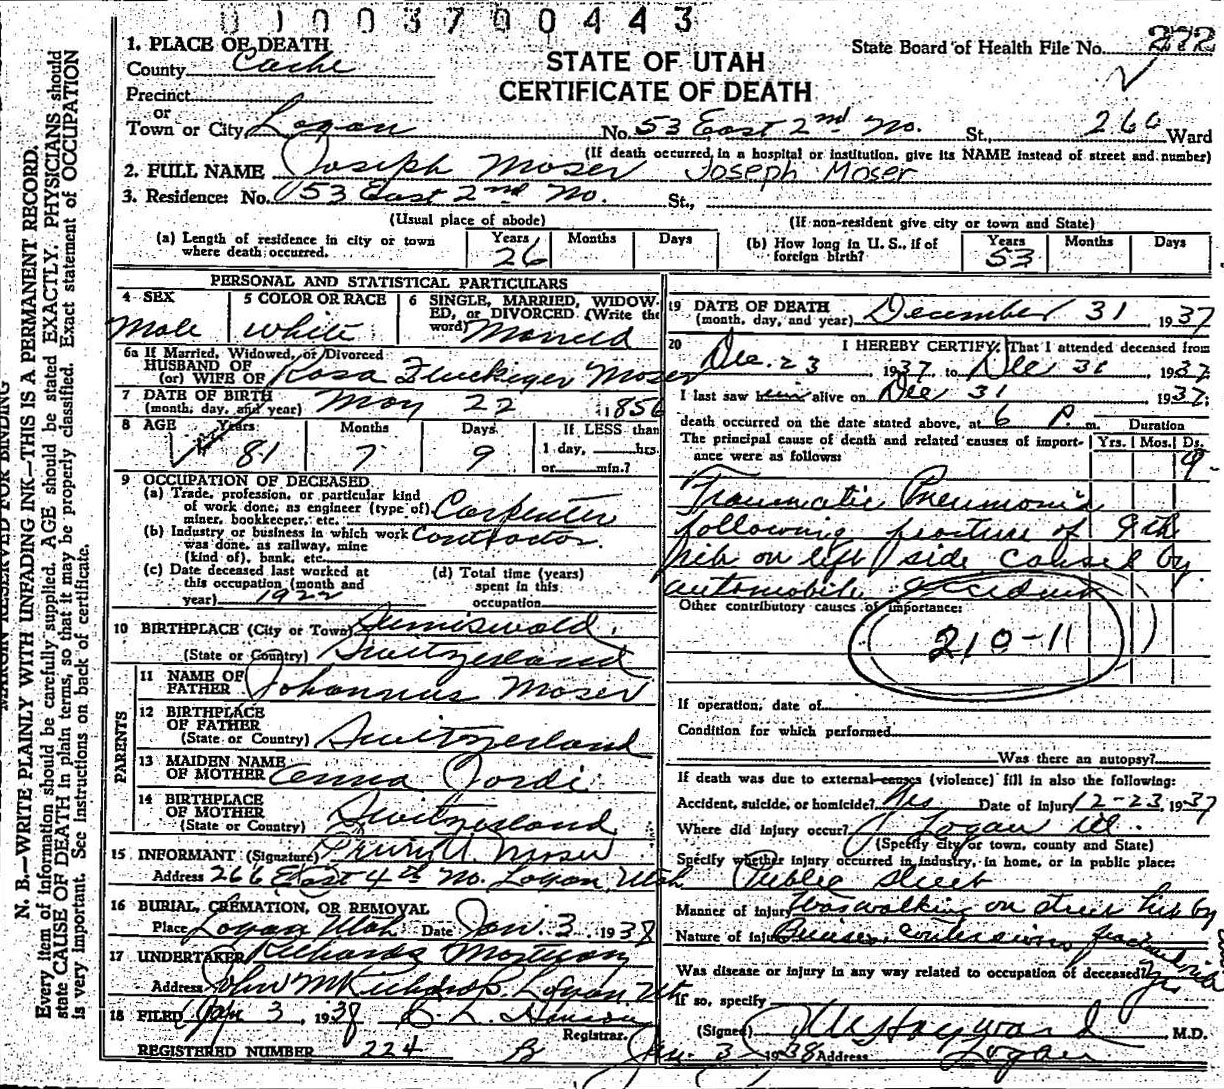 0 1 0 0 3 7 0 0 4 4 3
1. PLACE OF DEATH
County Cache
STATE OF UTAH
CERTIFICATE OF DEATH
State Board of Health File No. 272
Precinct
or
Town or City Logan No. 53 East 2nd No. St. 260 Ward
(If death occurred in a hospital or institution, give its NAME instead of street and number)
2. FULL NAME Joseph Moser Joseph Moser
3. Residence: No. 53 East 2nd No. St.,
(Usual place of abode) (If non-resident give city or town and State)
(a) Length of residence in city or town where death occurred. Years 26 Months Days
(b) How long in U. S., if of foreign birth? Years 53 Months Days
PERSONAL AND STATISTICAL PARTICULARS
4 SEX Male
5 COLOR OR RACE white
6 SINGLE, MARRIED, WIDOWED, or DIVORCED (Write the word) Married
6a If Married, Widowed, or Divorced
HUSBAND OF
(or) WIFE OF Rosa Fluckiger Moser
7 DATE OF BIRTH
(month, day, and year) May 22 1856
8 AGE Years 81 Months 7 Days 9 If LESS than 1 day, hrs. or min.?
9 OCCUPATION OF DECEASED
(a) Trade, profession, or particular kind
of work done, as engineer (type of)
miner, bookkeeper, etc. Carpenter
(b) Industry or business in which work
was done, as railway, mine
(kind of), bank, etc. Contractor
(c) Date deceased last worked at
this occupation (month and
year) 1922
(d) Total time (years)
spent in this
occupation
10 BIRTHPLACE (City or Town) Sumiswald
(State or Country) Switzerland
PARENTS
11 NAME OF
FATHER Johannus Moser
12 BIRTHPLACE
OF FATHER
(State or Country) Switzerland
13 MAIDEN NAME
OF MOTHER Anna Jordi
14 BIRTHPLACE
OF MOTHER
(State or Country) Switzerland
15 INFORMANT (Signature) Moser
Address 266 East 4th No. Logan, Utah
16 BURIAL, CREMATION, OR REMOVAL
Place Logan Utah Date Jan. 3 1938
17 UNDERTAKER Richards Mortuary
Address Logan, Ut
18 FILED Jan 3, 1938
Registrar.
REGISTERED NUMBER 224
19 DATE OF DEATH
(month, day, and year) December 31 1937
20 I HEREBY CERTIFY, That I attended deceased from
Dec. 23, 1937, to Dec 31 1937
I last saw him alive on Dec 31 1937;
death occurred on the date stated above, at 6 P. m. Duration
The principal cause of death and related causes of importance were as follows: Yrs. Mos. Ds.
9
Traumatic Pneumonia
following fracture of 9th
rib on left side caused by
automobile accident
Other contributory causes of importance:
210-11
If operation, date of
Condition for which performed
Was there an autopsy?
If death was due to external causes (violence) fill in also the following:
Accident, suicide, or homicide? Yes Date of injury 12-23, 1937
Where did injury occur? Logan Ut.
(Specify city or town, county and State)
Specify whether injury occurred in industry, in home, or in public place:
Public street
Manner of injury Was walking on street hit by
Nature of injury Bruises, contusions
Was disease or injury in any way related to occupation of deceased?
If so, specify
(Signed) Hayward M.D.
Jan. 3 1938 Address Logan
MARGIN RESERVED FOR BINDING
N. B.—WRITE PLAINLY WITH UNFADING INK—THIS IS A PERMANENT RECORD.
Every item of information should be carefully supplied. AGE should be stated EXACTLY. PHYSICIANS should
state CAUSE OF DEATH in plain terms, so that it may be properly classified. Exact statement of OCCUPATION
is very important. See instructions on back of certificate.